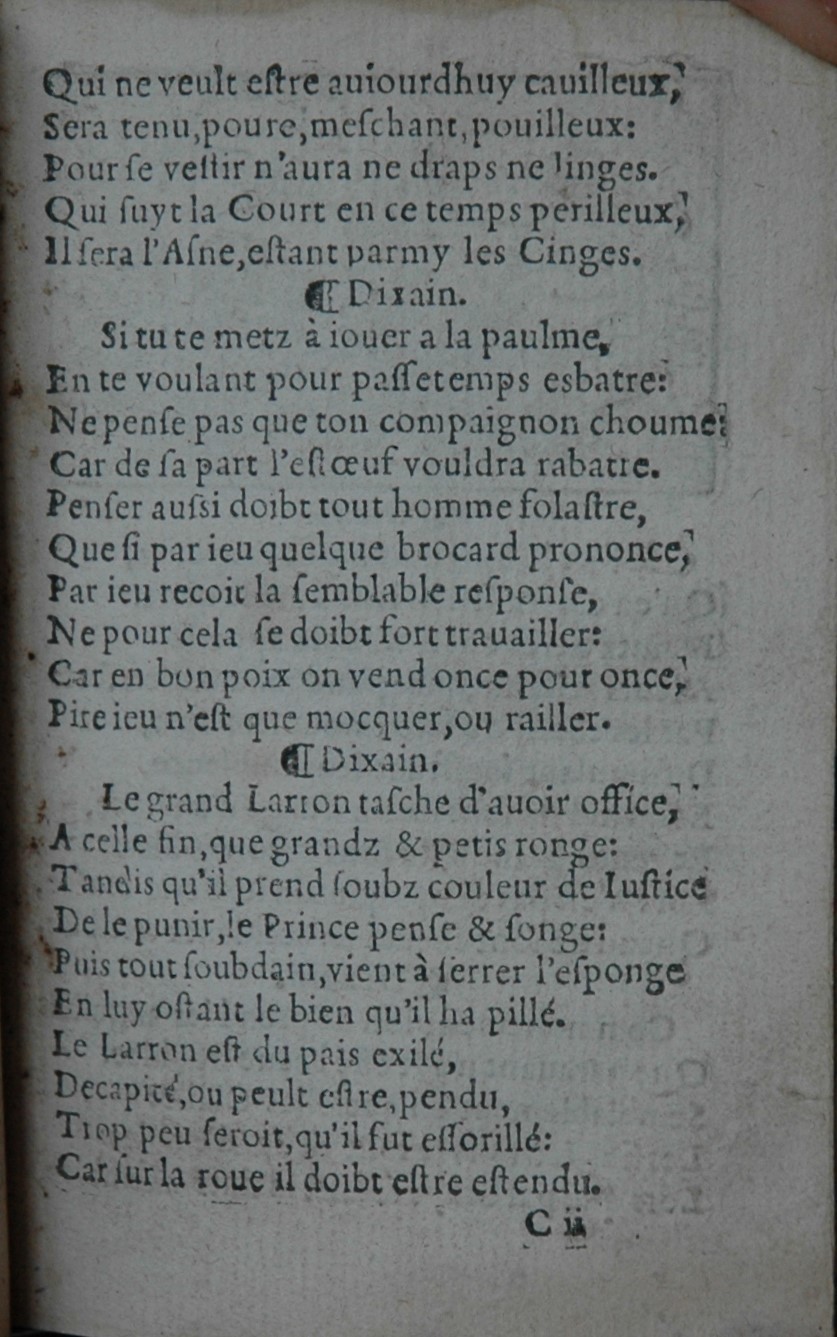 Qui ne veult eſtre auiourdhuy cauilleux,
Sera tenu,poure,meſchant,pouilleux:
Pour ſe veſtir n'aura ne draps ne linges.
Qui ſuyt la Court en ce temps perilleux,
Il ſera l'Aſne,eſtant parmy les Cinges.
¶ Dixain.
Si tu te metz à iouer a la paulme,
En te voulant pour paſſetemps esbatre:
Ne penſe pas que ton compaignon choume:
Car de ſa part l'eſtœuf vouldra rabatre.
Penſer auſsi doibt tout homme folaſtre,
Que ſi par ieu quelque brocard prononce,
Par ieu recoit la ſemblable reſponſe,
Ne pour cela ſe doibt fort trauailler:
Car en bon poix on vend once pour once,
Pire ieu n'eſt que mocquer,ou railler.
¶ Dixain.
Le grand Larron taſche d'auoir office,
A celle fin,que grandz & petis ronge:
Tandis qu'il prend ſoubz couleur de Iuſtice
De le punir,le Prince penſe & ſonge:
Puis tout ſoubdain,vient à ſerrer l'eſponge
En luy oſtant le bien qu'il ha pillé.
Le Larron eſt du pais exilé,
Decapité,ou peult eſtre,pendu,
Trop peu ſeroit,qu'il fut eſſorillé:
Car ſur la roue il doibt eſtre eſtendu.
C ii